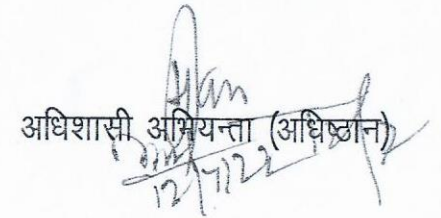 अधिशासी अभियन्ता (अधिष्ठान)
12/7/22